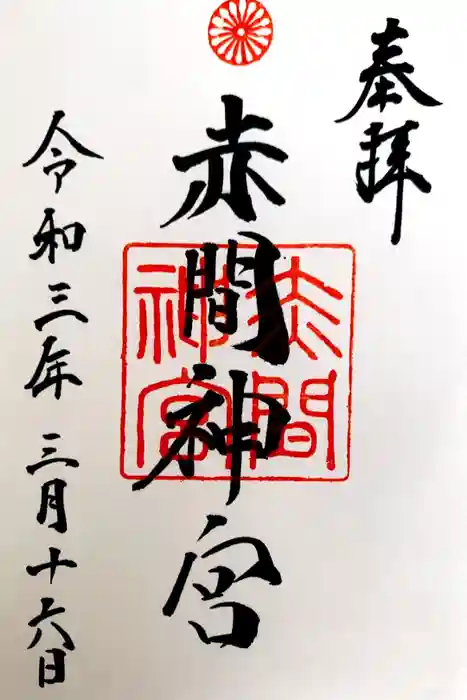 奉拝
赤間神宮
赤間
神宮
令和三年三月十六日